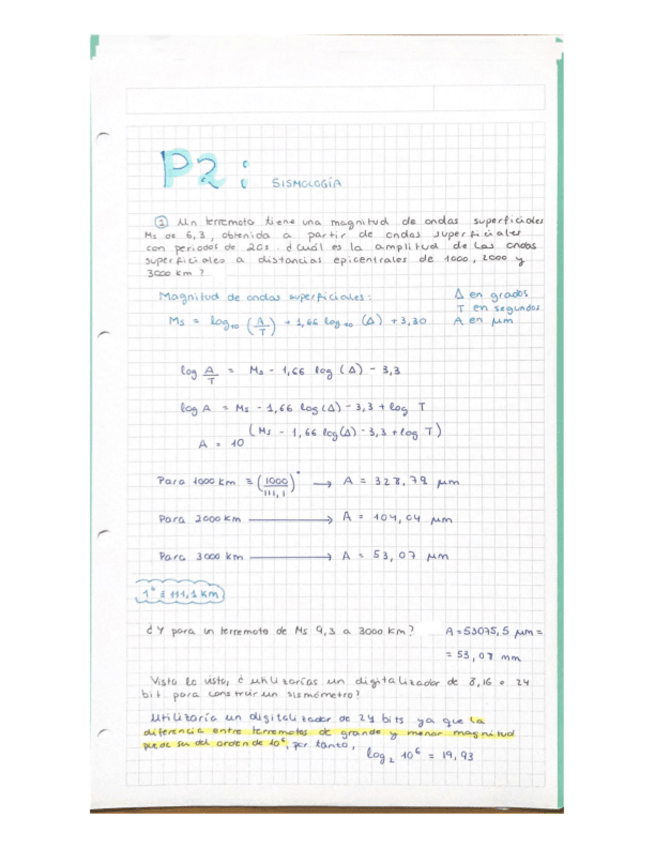 P2:
SISMOLOGÍA
① Un terremoto tiene una magnitud de ondas superficiales
Ms de 6,3, obtenida a partir de ondas superficiales
con periodos de 20s. ¿Cuál es la amplitud de las ondas
superficiales a distancias epicentrales de 1000, 2000 y
3000 km?
Magnitud de ondas superficiales:
Δ en grados
T en segundos
Ms = log₁₀ (A/T) + 1,66 log₁₀ (Δ) + 3,30
A en μm
log A/T = Ms - 1,66 log (Δ) - 3,3
log A = Ms - 1,66 log(Δ) - 3,3 + log T
A = 10^(Ms - 1,66 log(Δ) - 3,3 + log T)
Para 1000 km ≡ (1000/111,1)° → A = 328,79 μm
Para 2000 km → A = 104,04 μm
Para 3000 km → A = 53,07 μm
1° ≡ 111,1 km
¿Y para un terremoto de Ms 9,3 a 3000 km? A = 53075,5 μm =
= 53,07 mm
Visto lo visto, ¿utilizarías un digitalizador de 8, 16 o 24
bit para construir un sismómetro?
Utilizaría un digitalizador de 24 bits ya que la
diferencia entre terremotos de grande y menor magnitud
puede ser del orden de 10⁶, por tanto,
log₂ 10⁶ = 19,93